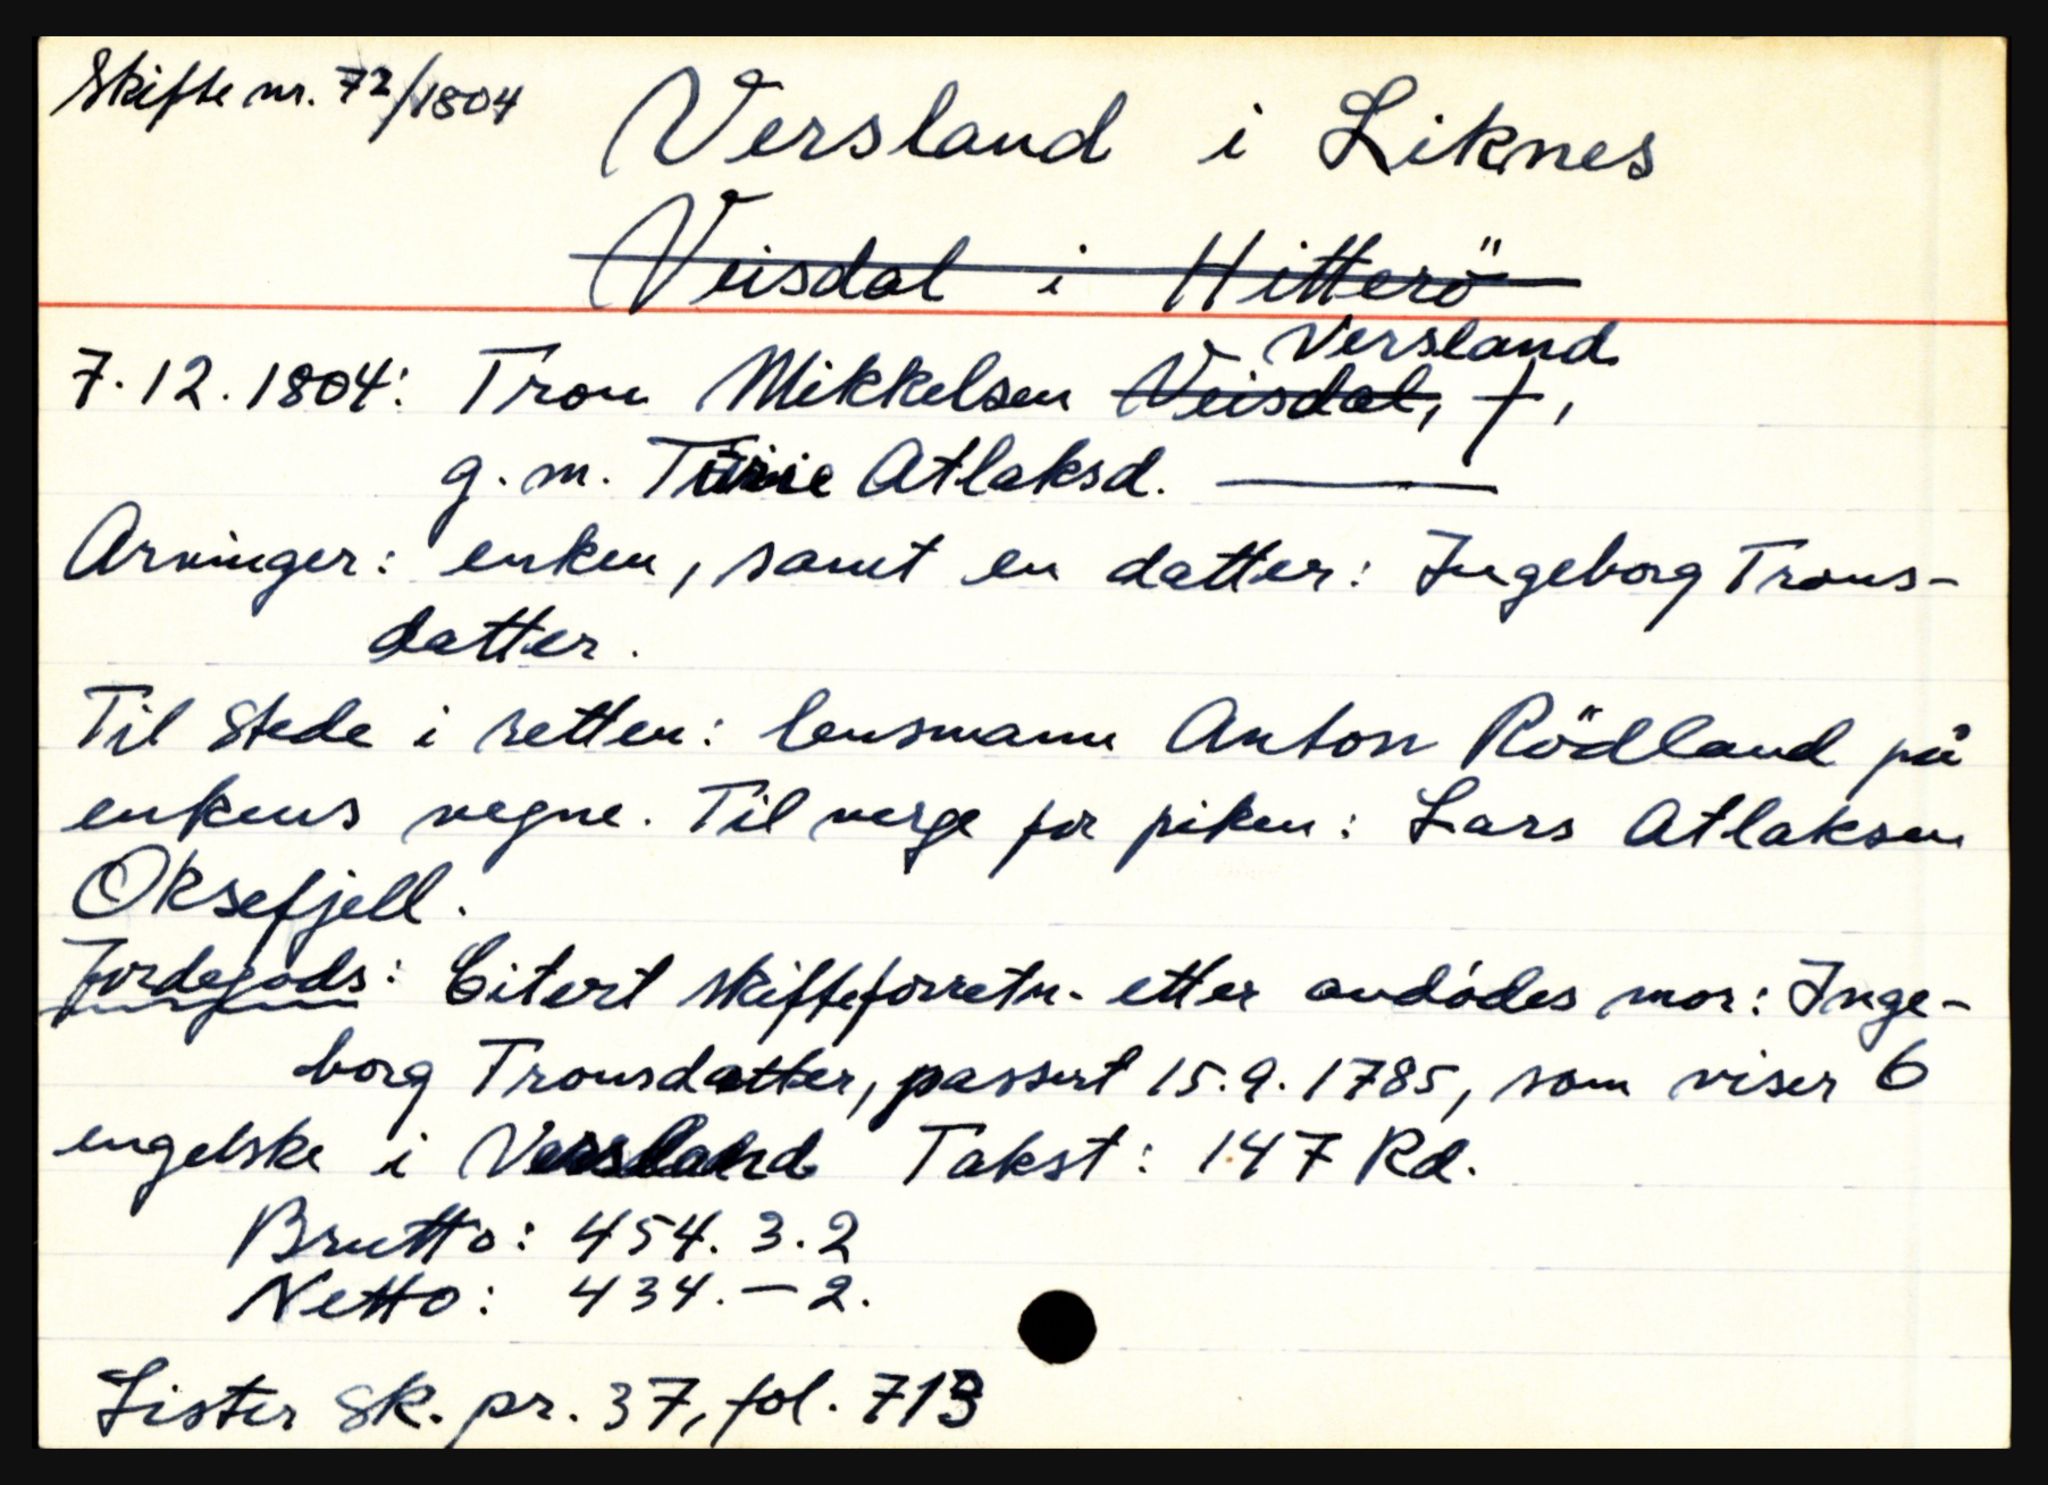 Skifte nr. 72/1804
Versland i Liknes
Veisdal i Hitterö
Versland
7.12.1804: Tron Mikkelsen Veisdal, †,
g. m. Atlaksd. ———
Arvinger: enken, samt en datter: Ingeborg Trons-
datter.
Til stede i retten: lensmann Anton Rödland på
enkens vegne. Til verge for piken: Lars Atlaksen
Oksefjell.
Jordegods: Citert skifteforretn. etter avdódes mor: Inge-
borg Tronsdatter, passert 15.9.1785, som viser 6
engelske i Versland Takst: 147 Rd.
Brutto: 454. 3. 2
Netto: 434. – 2.
Lister Sk. pr. 37, fol. 713